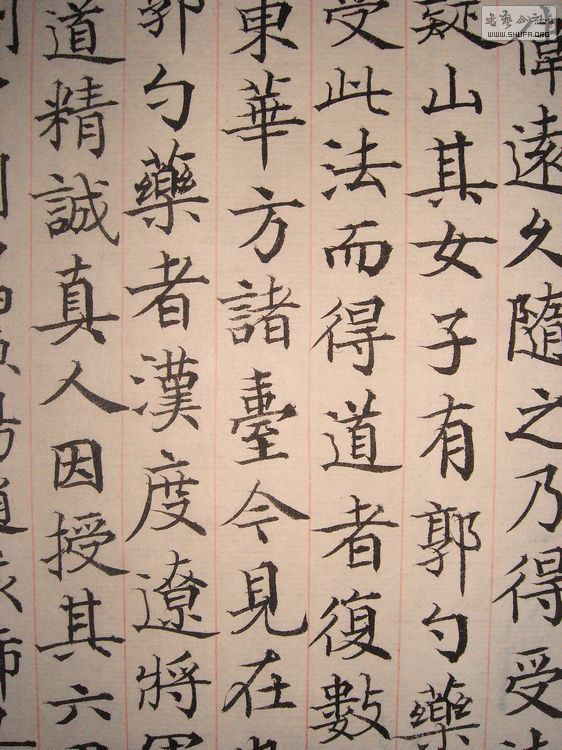 偉遠久隨之乃得受
疑山其女子有郭勺藥
受此法而得道者復數
東華方諸臺今見在
郭勺藥者漢度遼將
道精誠真人因授其六
书艺公社
WWW.SHUFA.ORG